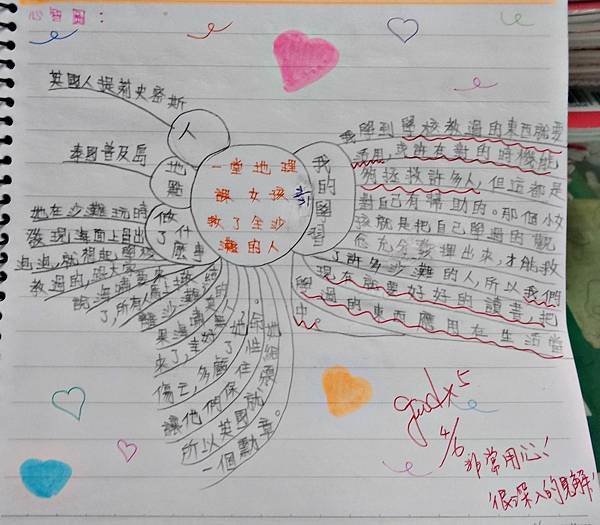 心智圖:
英國人提莉史密斯
人
泰國普及島
地點
一堂地理
課女孩
救了全沙
灘的人
我的學習
做了什麼事
我學到學校教過的東西就要
活用,或許在對的時機能
夠拯救許多人,但這都是
對自己有幫助的。那個小女
孩就是把自己學過的觀
念充分發揮出來,才能救
了許多沙灘的人,所以我們
現在就要好好的讀書,把
學過的東西應用在生活當
中。
她在沙灘玩時
發現海面上冒出
泡泡,就想起學校
教過的,跟大家
說海嘯要來
了,所有人馬上
離沙灘
果海嘯真的
來了,幸好無人
傷亡,多虧了她
讓他們保住
所以英國就
一個勳章。
good x5
4/6
非常用心!
很深入的見解!